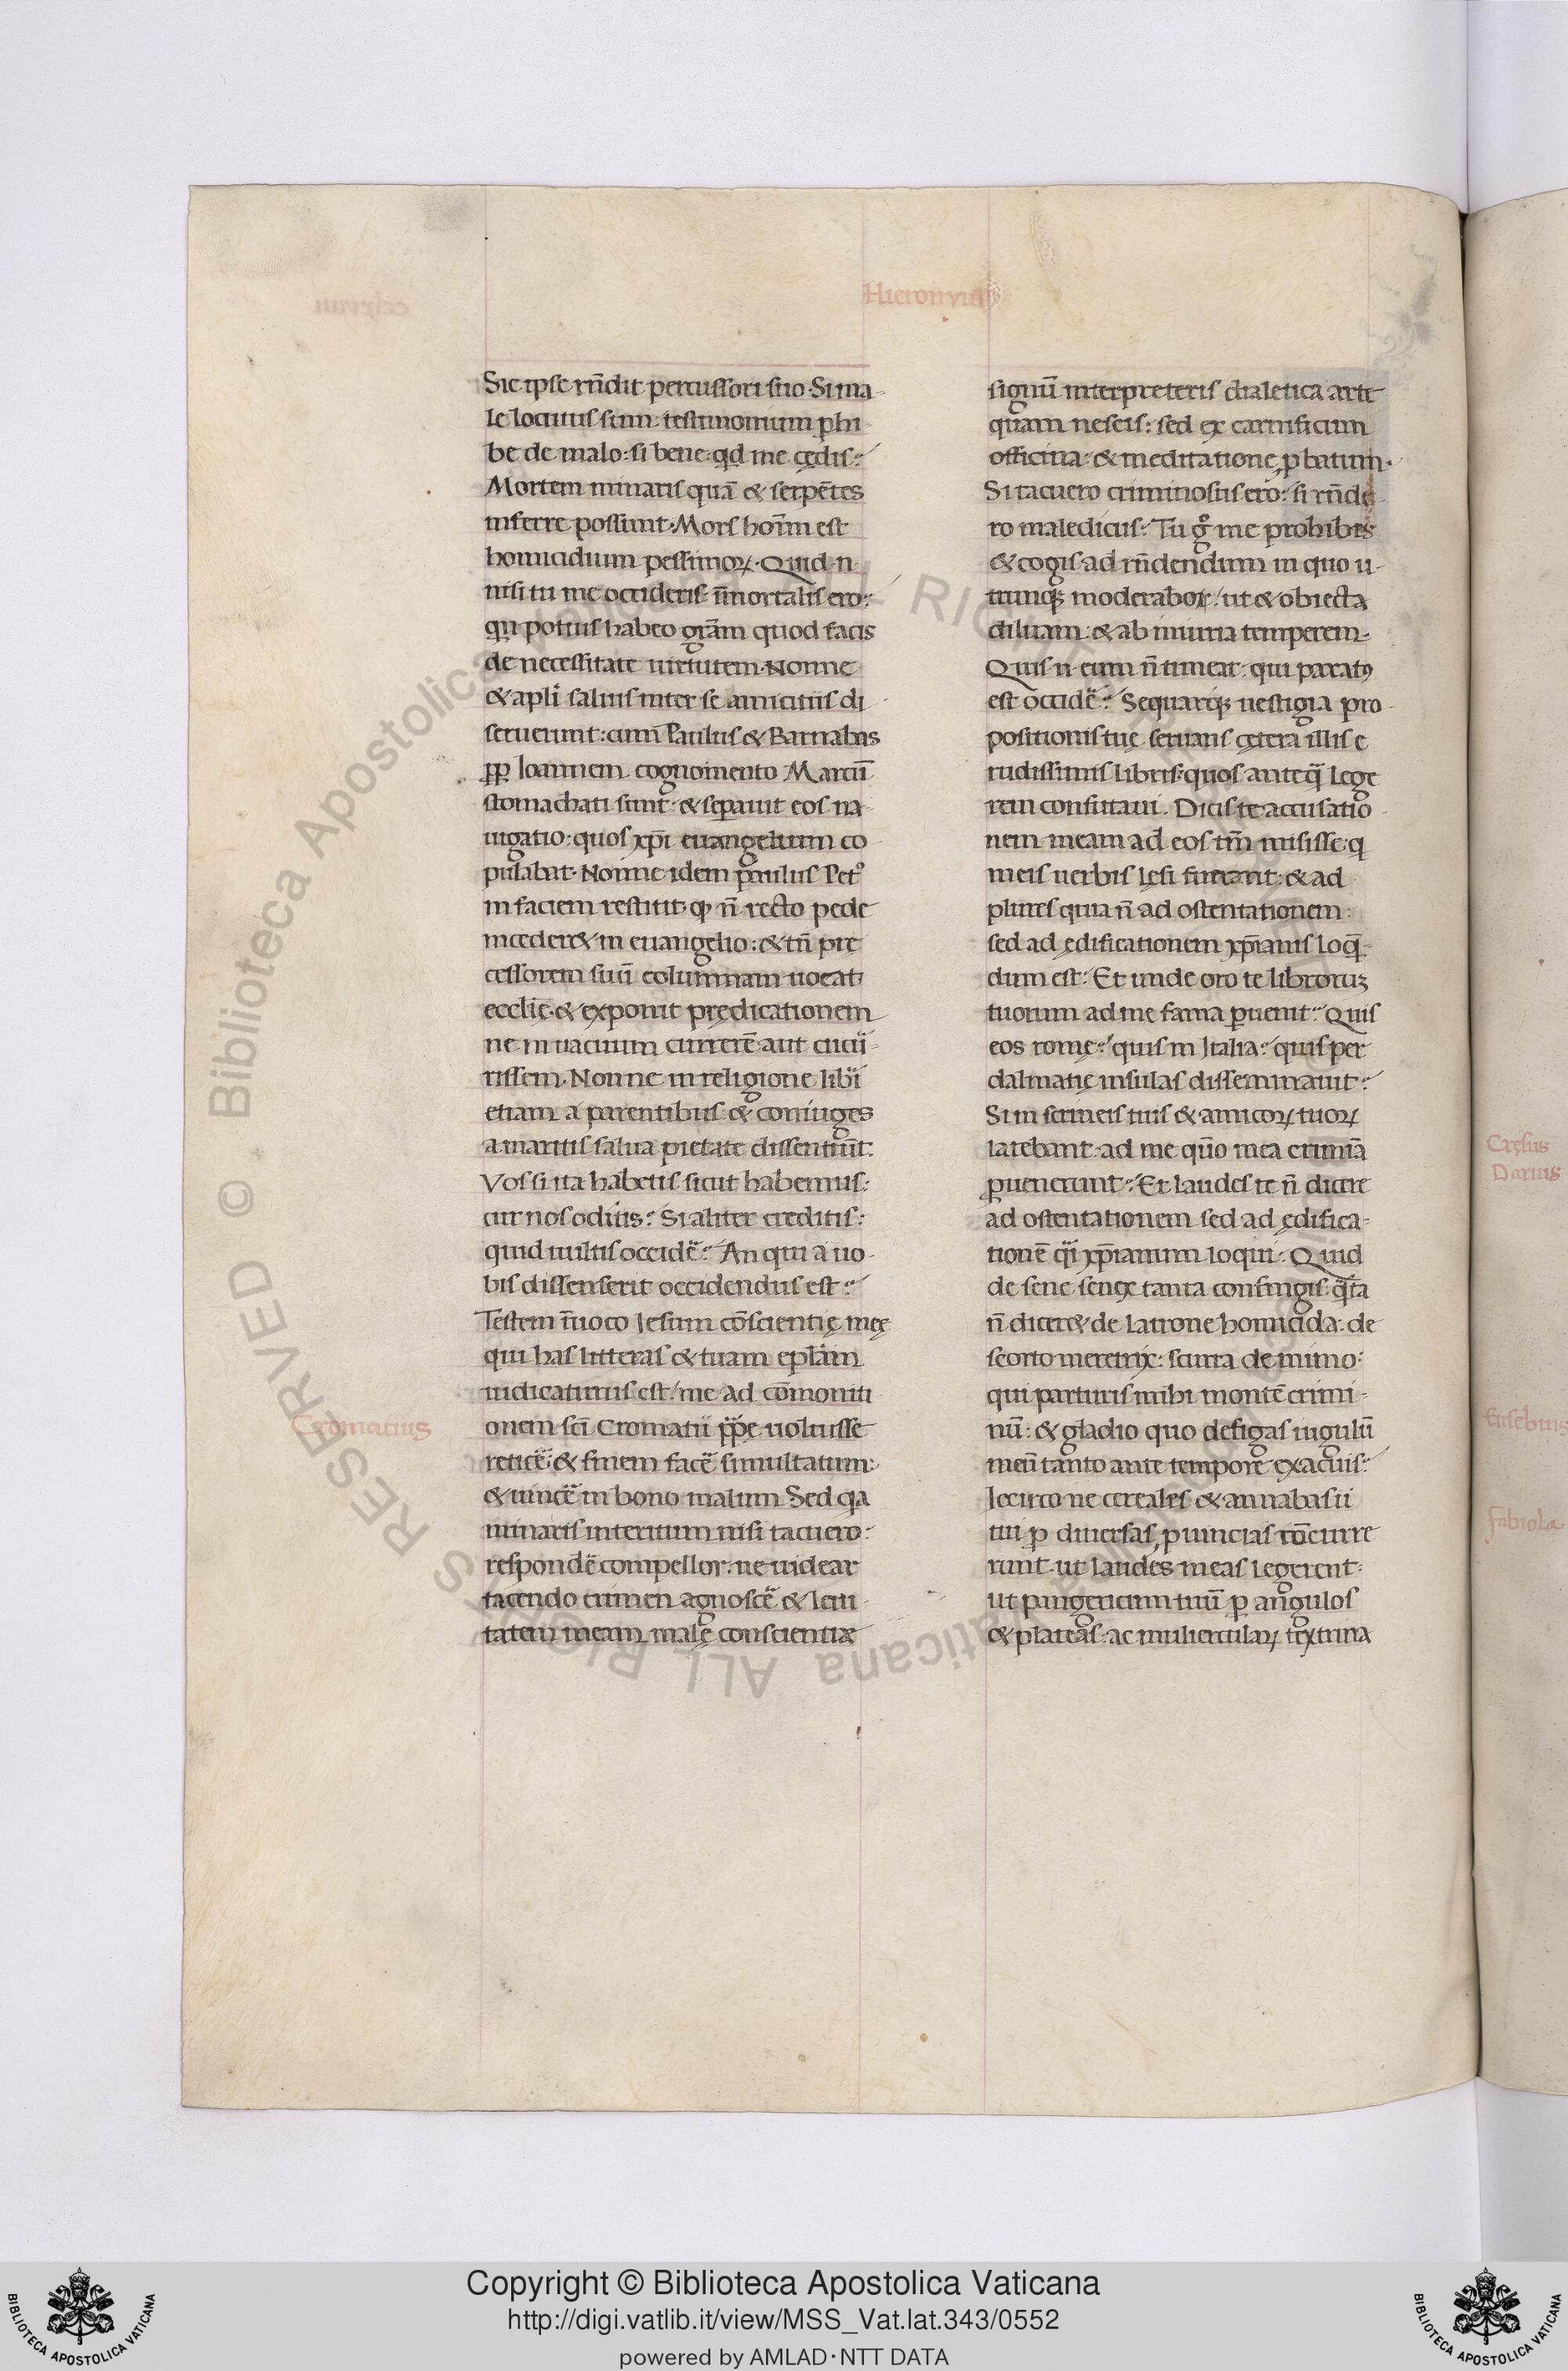 Hieronymus
Sic ipse rn̄dit percussori suo. Si ma-
le locutus sum: testimonium ꝑhi-
be de malo: si bene: qd me cędis?
Mortem minaris quā & serpētes
inferre possunt. Mors hoīm est
homicidium pessimoꝝ. Quid n.
nisi tu me occideris: īmortalis ero?
qn potius habeo grām quod facis
de necessitate uirtutem. Nonne
& apłi saluis inter se amicitiis di-
scruerunt: cum Paulus & Barnabas
ꝓp Ioannem cognomento Marcū
stomachati sunt: & seꝑauit eos na-
uigatio: quos xp̄i euangelium co-
pulabat. Nonne idem paulus Petꝰ
in faciem restitit ꝙ n̄ recto pede
inceder& in euangelio: & tn̄ pre-
cessorem suū columnam uocat
ecclię. & exponit prędicationem
ne in uacuum currerē aut cucur-
rissem. Nonne in religione libi
etiam a parentibus & coniuges
a maritis salua pietate dissentiūt.
Vos si ita habetis sicut habemus:
cur nos oditis? Si aliter creditis:
quid uultis occidē? An qui a uo-
bis dissenserit occidendus est?
Testem īuoco Iesum cōscientię meę
qui has litteras & tuam epłam
iudicaturus est: me ad cōmoniti-
Cromatius
onem sc̄i Cromatii ꝑpe uoluisse
reticē: & finem facē simultatum:
& uincē in bono malum Sed qa
minaris interitum nisi tacuero:
respondē compellor: ne uidear
tacendo crimen agnoscē & leni-
tatem meam malę conscientiae
signū interpreteris dialetica arte
quam nescis: sed ex carnificum
officina: & meditatione ꝓbatum.
Si tacuero criminosus ero: si rn̄de-
ro maledicus. Tu g me prohibes
& cogis ad rn̄dendum in quo u-
trunqꝫ moderabor: ut & obiecta
diluam: & ab iniuria temperem.
Quis n. eum n̄ timeat: qui paratꝰ
est occidē? Sequarqꝫ uestigia pro-
positionis tuę: seruans cętera illis e-
rudissimis libris: quos anteq̄ lege-
rem confutaui. Dicis te accusatio-
nem meam ad eos tm̄ misisse: q
meis uerbis lęsi fuerant: & ad
plures quia n̄ ad ostentationem:
sed ad ędificationem xp̄ianis loq̄-
dum est. Et unde oro te librorum
tuorum ad me fama ꝑuenit? Quis
eos rome? quis in Italia? quis per
dalmatię insulas disseminauit?
Si in scrineis tuis & amicoꝝ tuoꝝ
latebant: ad me quō mea crimīa
ꝑuenerunt? Et laudes te n̄ dicere
ad ostentationem sed ad ędifica-
tionē qi xp̄ianum loqui. Quid
de sene senex tanta confingis: q̄ta
n̄ dicer& de latrone homicida: de
scorto meretrix: scurra de mimo:
qui parturis mihi montē crimi-
nū: & gladio quo defigas iugulū
meū tanto ante tempore exacuis?
Iccirco ne cereales & annabasii
tui ꝑ diuersas ꝓuincias cōcurre-
runt. ut laudes meas legerent:
ut pangericum tuū ꝑ angulos
& plateas: ac muliercularꝝ textrina
Cręsus
Darius
Eusebius
fabiola
© Biblioteca Apostolica Vaticana ALL RIGHTS RESERVED
Copyright © Biblioteca Apostolica Vaticana
http://digi.vatlib.it/view/MSS_Vat.lat.343/0552
powered by AMLAD·NTT DATA
BIBLIOTECA APOSTOLICA VATICANA
BIBLIOTECA APOSTOLICA VATICANA